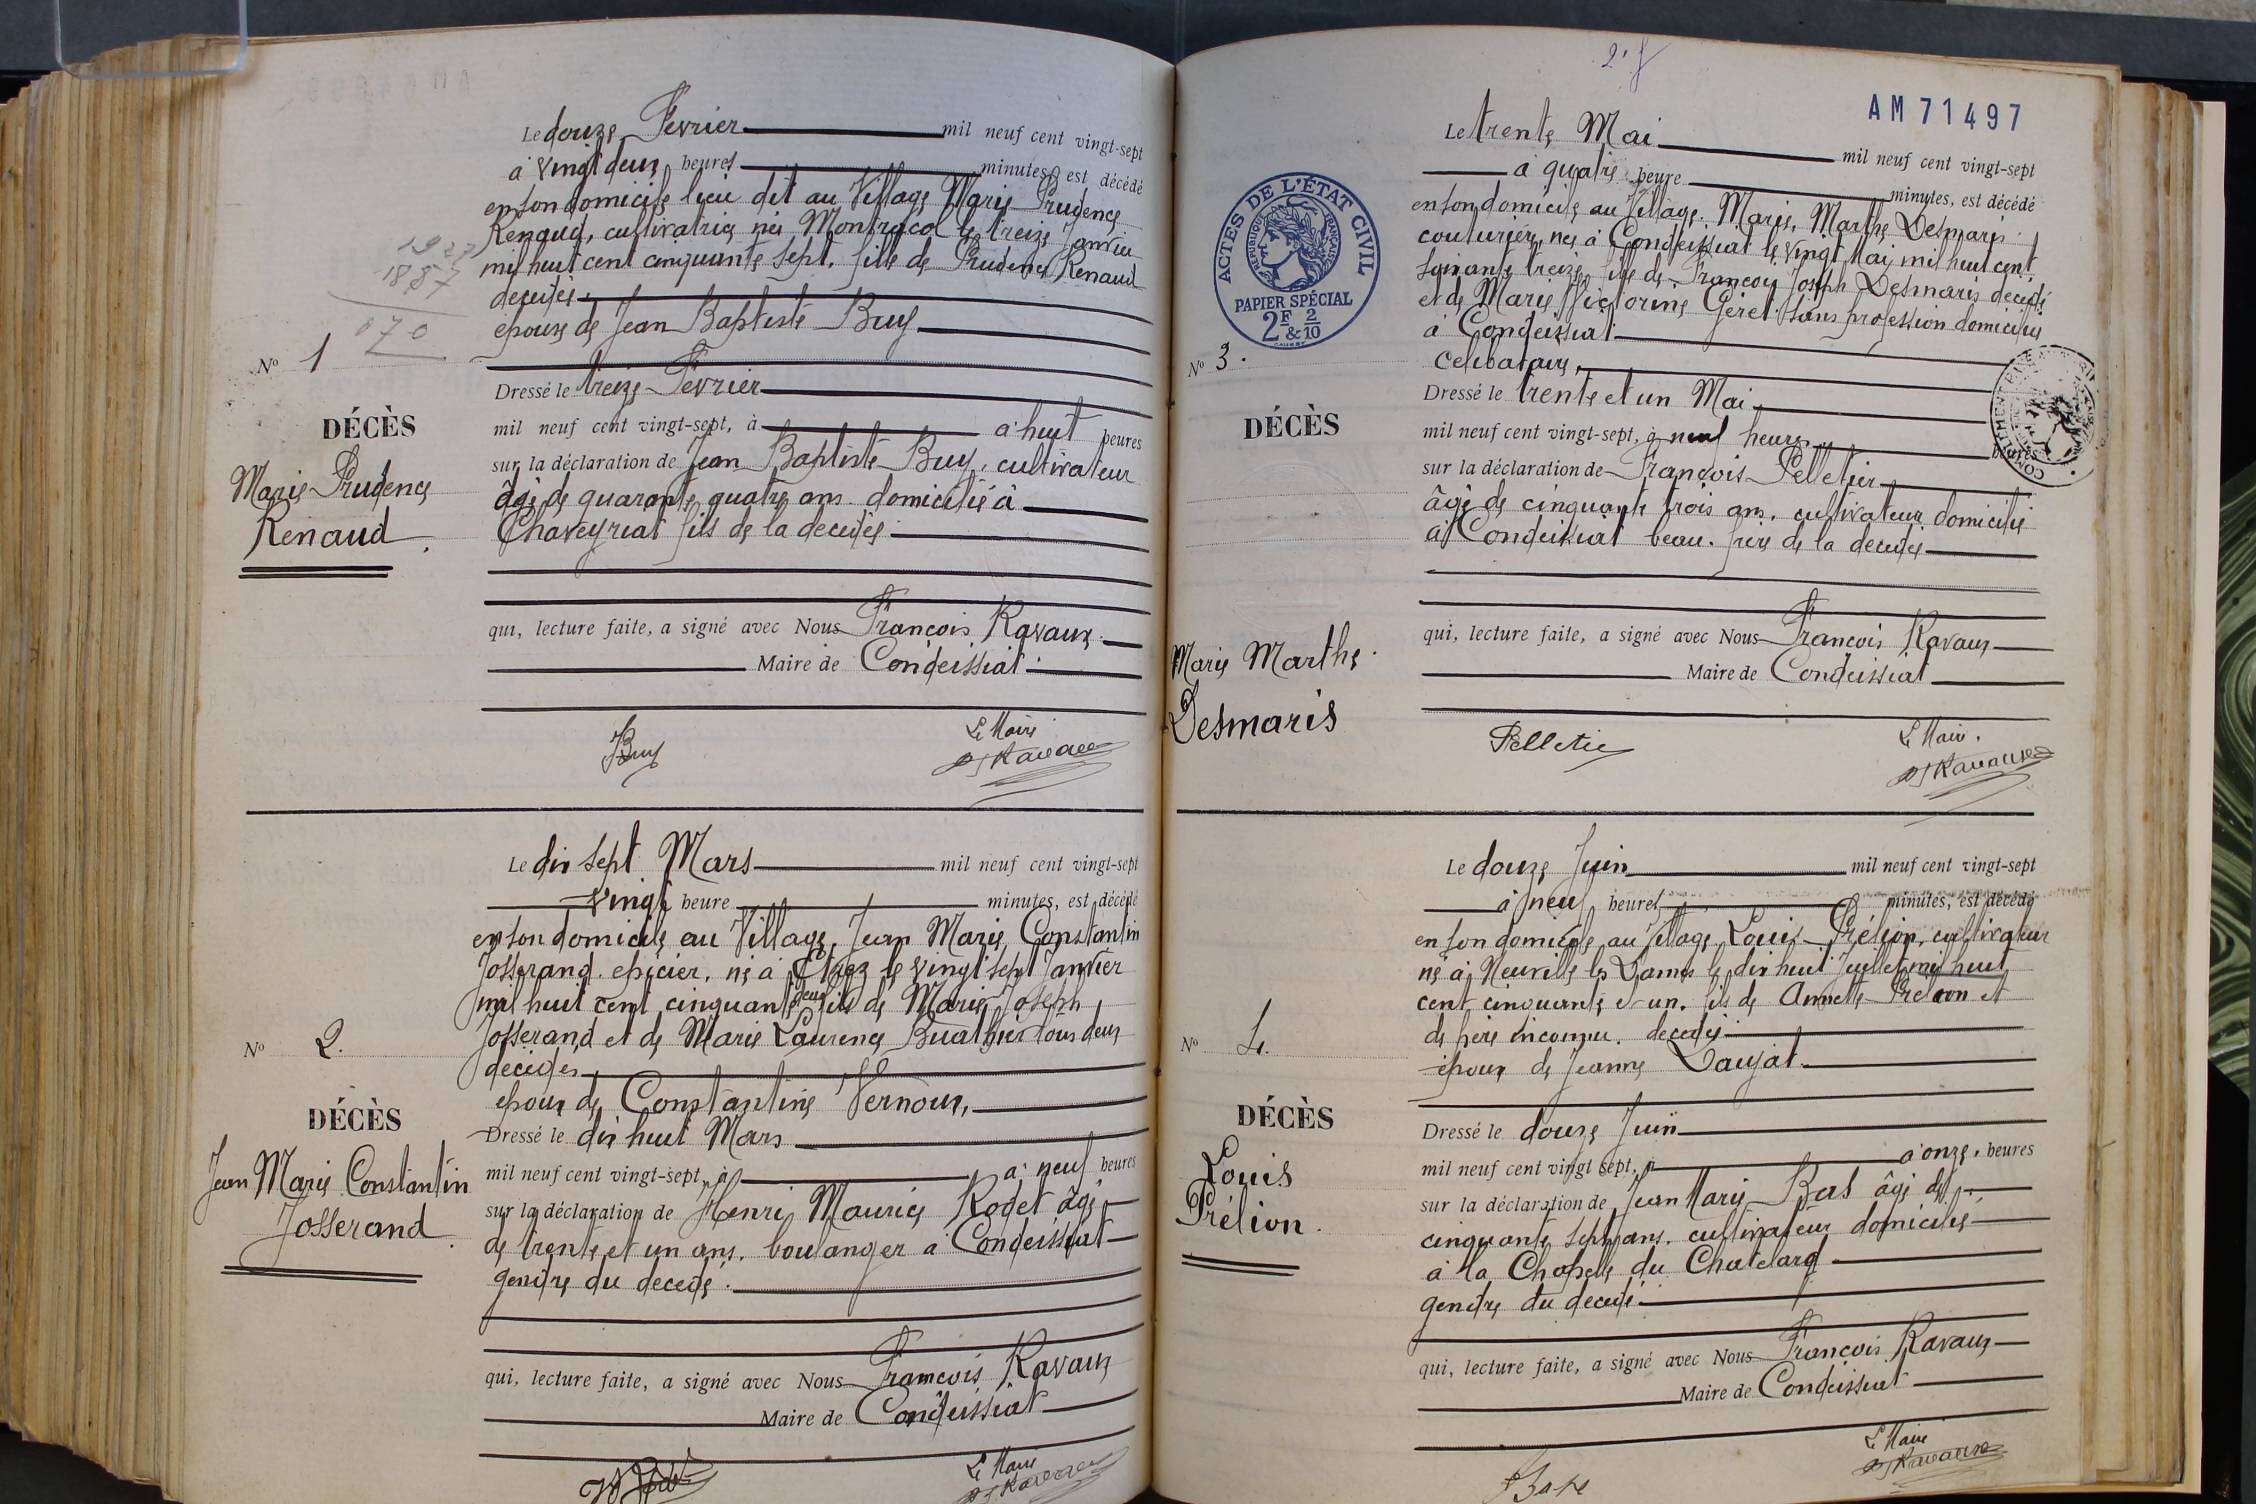 Le douze Février mil neuf cent vingt-sept
à vingt deux heures minutes, est décédé
en son domicile lieu dit au Village Marie Prudence
Renaud, cultivatrice née Montracol le treize Janvier
mil huit cent cinquante sept, fille de Prudence Renaud
décédée.
épouse de Jean Baptiste Buy
1927
1857
070
N° 1
DÉCÈS
Marie Prudence
Renaud
Dressé le treize Février
mil neuf cent vingt-sept, à à huit heures
sur la déclaration de Jean Baptiste Buy, cultivateur
âgé de quarante quatre ans domicilié à
Chaveyriat fils de la décédée
qui, lecture faite, a signé avec Nous François Ravaux
Maire de Condeissiat
Buy
Le Maire
Ravaux
Le dix sept Mars mil neuf cent vingt-sept
vingt heure minutes, est décédé
en son domicile au Village, Jean Marie Constantin
Josserand épicier, né à le vingt sept Janvier
mil huit cent cinquante deux fils de Marie Joseph
Josserand et de Marie Laurence Buathier tous deux
décédés
époux de Constantine Vernoux,
N° 2.
DÉCÈS
Jean Marie Constantin
Josserand
Dressé le dix huit Mars
mil neuf cent vingt-sept, à à neuf heures
sur la déclaration de Henri Maurice Rodet âgé
de trente et un ans, boulanger à Condeissiat
gendre du décédé.
qui, lecture faite, a signé avec Nous François Ravaux
Maire de Condeissiat
Le Maire
Ravaux
2. f
AM 71497
Le trente Mai mil neuf cent vingt-sept
à quatre heure minutes, est décédé
en son domicile au Village, Marie, Marthe Desmaris
couturière, née à Condeissiat le vingt Mai mil huit cent
soixante treize fille de François Joseph Desmaris décédé
et de Marie Victorine Géret sans profession domiciliée
à Condeissiat
Célibataire,
ACTES DE L'ÉTAT CIVIL
RÉPUBLIQUE FRANÇAISE
PAPIER SPÉCIAL
2F & 2/10
N° 3.
DÉCÈS
Marie Marthe
Desmaris
Dressé le trente et un Mai
mil neuf cent vingt-sept, à neuf heures heures
sur la déclaration de François Pelletier
âgé de cinquante trois ans, cultivateur domicilié
à Condeissiat beau-frère de la décédée
qui, lecture faite, a signé avec Nous François Ravaux
Maire de Condeissiat
Pelletier
Le Maire.
Ravaux
Le douze Juin mil neuf cent vingt-sept
à neuf heures minutes, est décédé
en son domicile au Village Louis Prélion, cultivateur
né à Neuville les Dames le dix huit Juillet mil huit
cent cinquante et un, fils de Annette Prélion et
de père inconnu. décédée
époux de Jeanne Daujat
N° 4.
DÉCÈS
Louis
Prélion.
Dressé le douze Juin
mil neuf cent vingt sept, à à onze heures
sur la déclaration de Jean Marie Bas âgé de
cinquante sept ans, cultivateur domicilié
à la Chapelle du Chatelard
gendre du décédé
qui, lecture faite, a signé avec Nous François Ravaux
Maire de Condeissiat
Le Maire
Ravaux